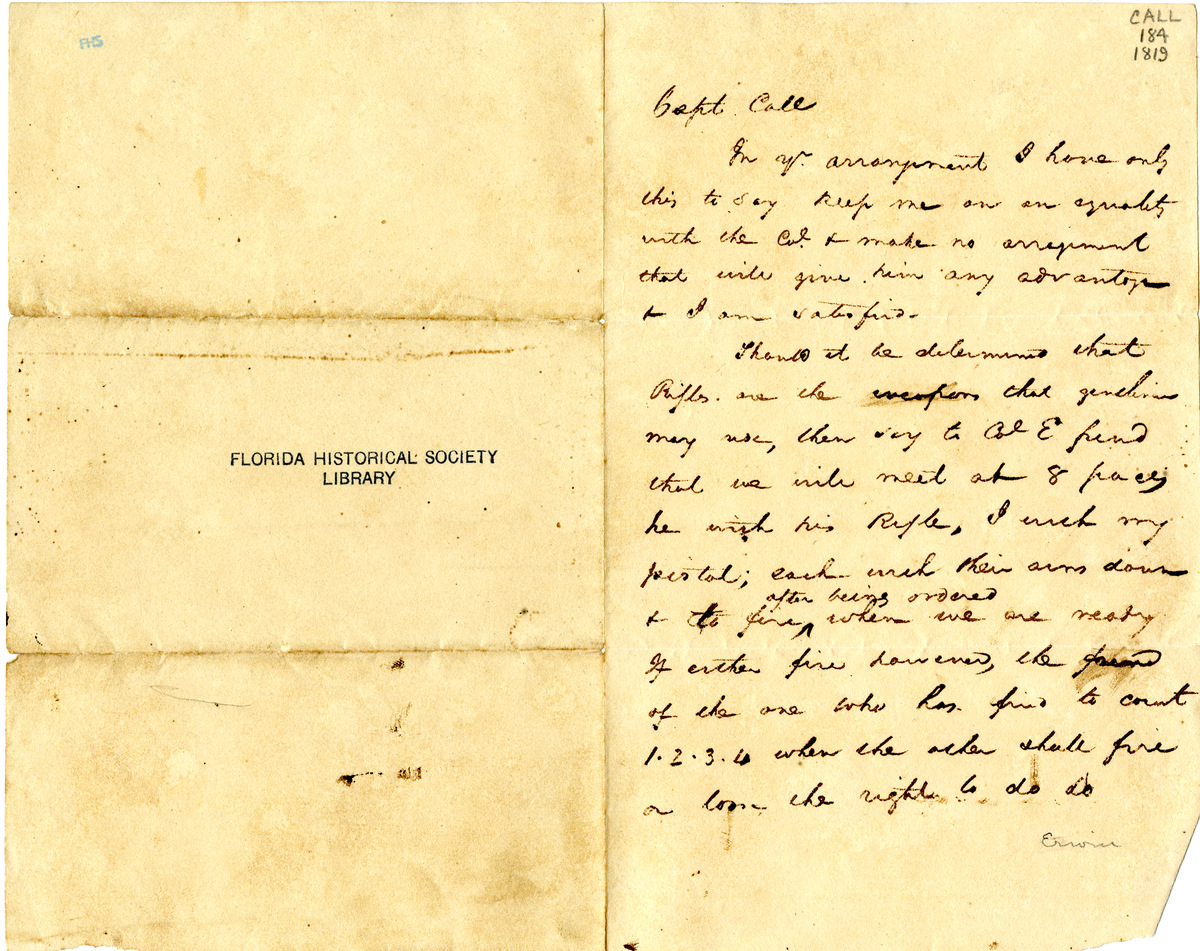 FHS
FLORIDA HISTORICAL SOCIETY
LIBRARY
CALL
184
1819
Capt. Call
In yr. arrangement I have only
this to say keep me on an equality
with the Col. & make no arregment
that will give him any advantage
& I am satisfied.
Should it be determined that
Rifles are the weapons that gentlemen
may use, then say to Col E friend
that we will meet at 8 paces
he with his Rifle, I with my
pistol; each with their arms down
after being ordered
& to fire, when we are ready
If either fire however, the friend
of the one who has fired to count
1. 2. 3. 4 when the other shall fire
or loose the right to do so
Erwin